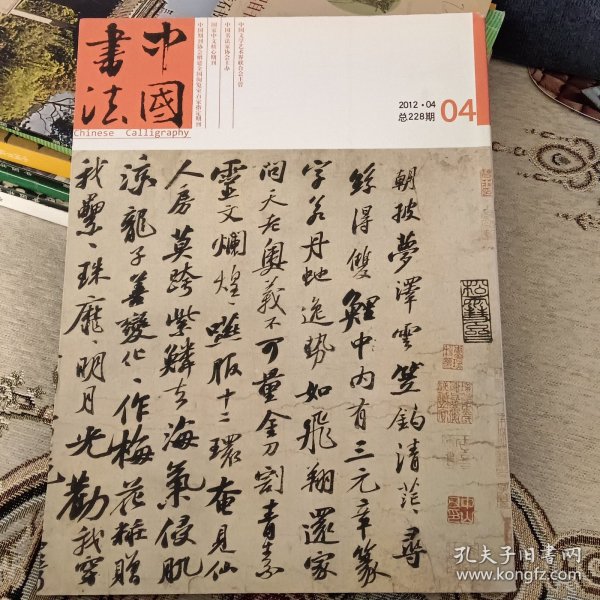 中國
書法
Chinese Calligraphy
中国文学艺术界联合会主管
中国书法家协会主办
国家中文核心期刊
2012·04
总228期
04
朝披夢澤雲笠釣清茫尋
絲得雙鯉中內有三元章篆
字若丹虵逸勢如飛翔還家
問天老奧義不可量金刀割青素
靈文爛煌煌嚥服十二環奄見仙
人房莫跨紫鱗去海氣侵肌
涼龍子善變化化作梅花粧贈
我纍纍珠靡靡明月光勸我穿
孔夫子旧书网
www.kongfz.com